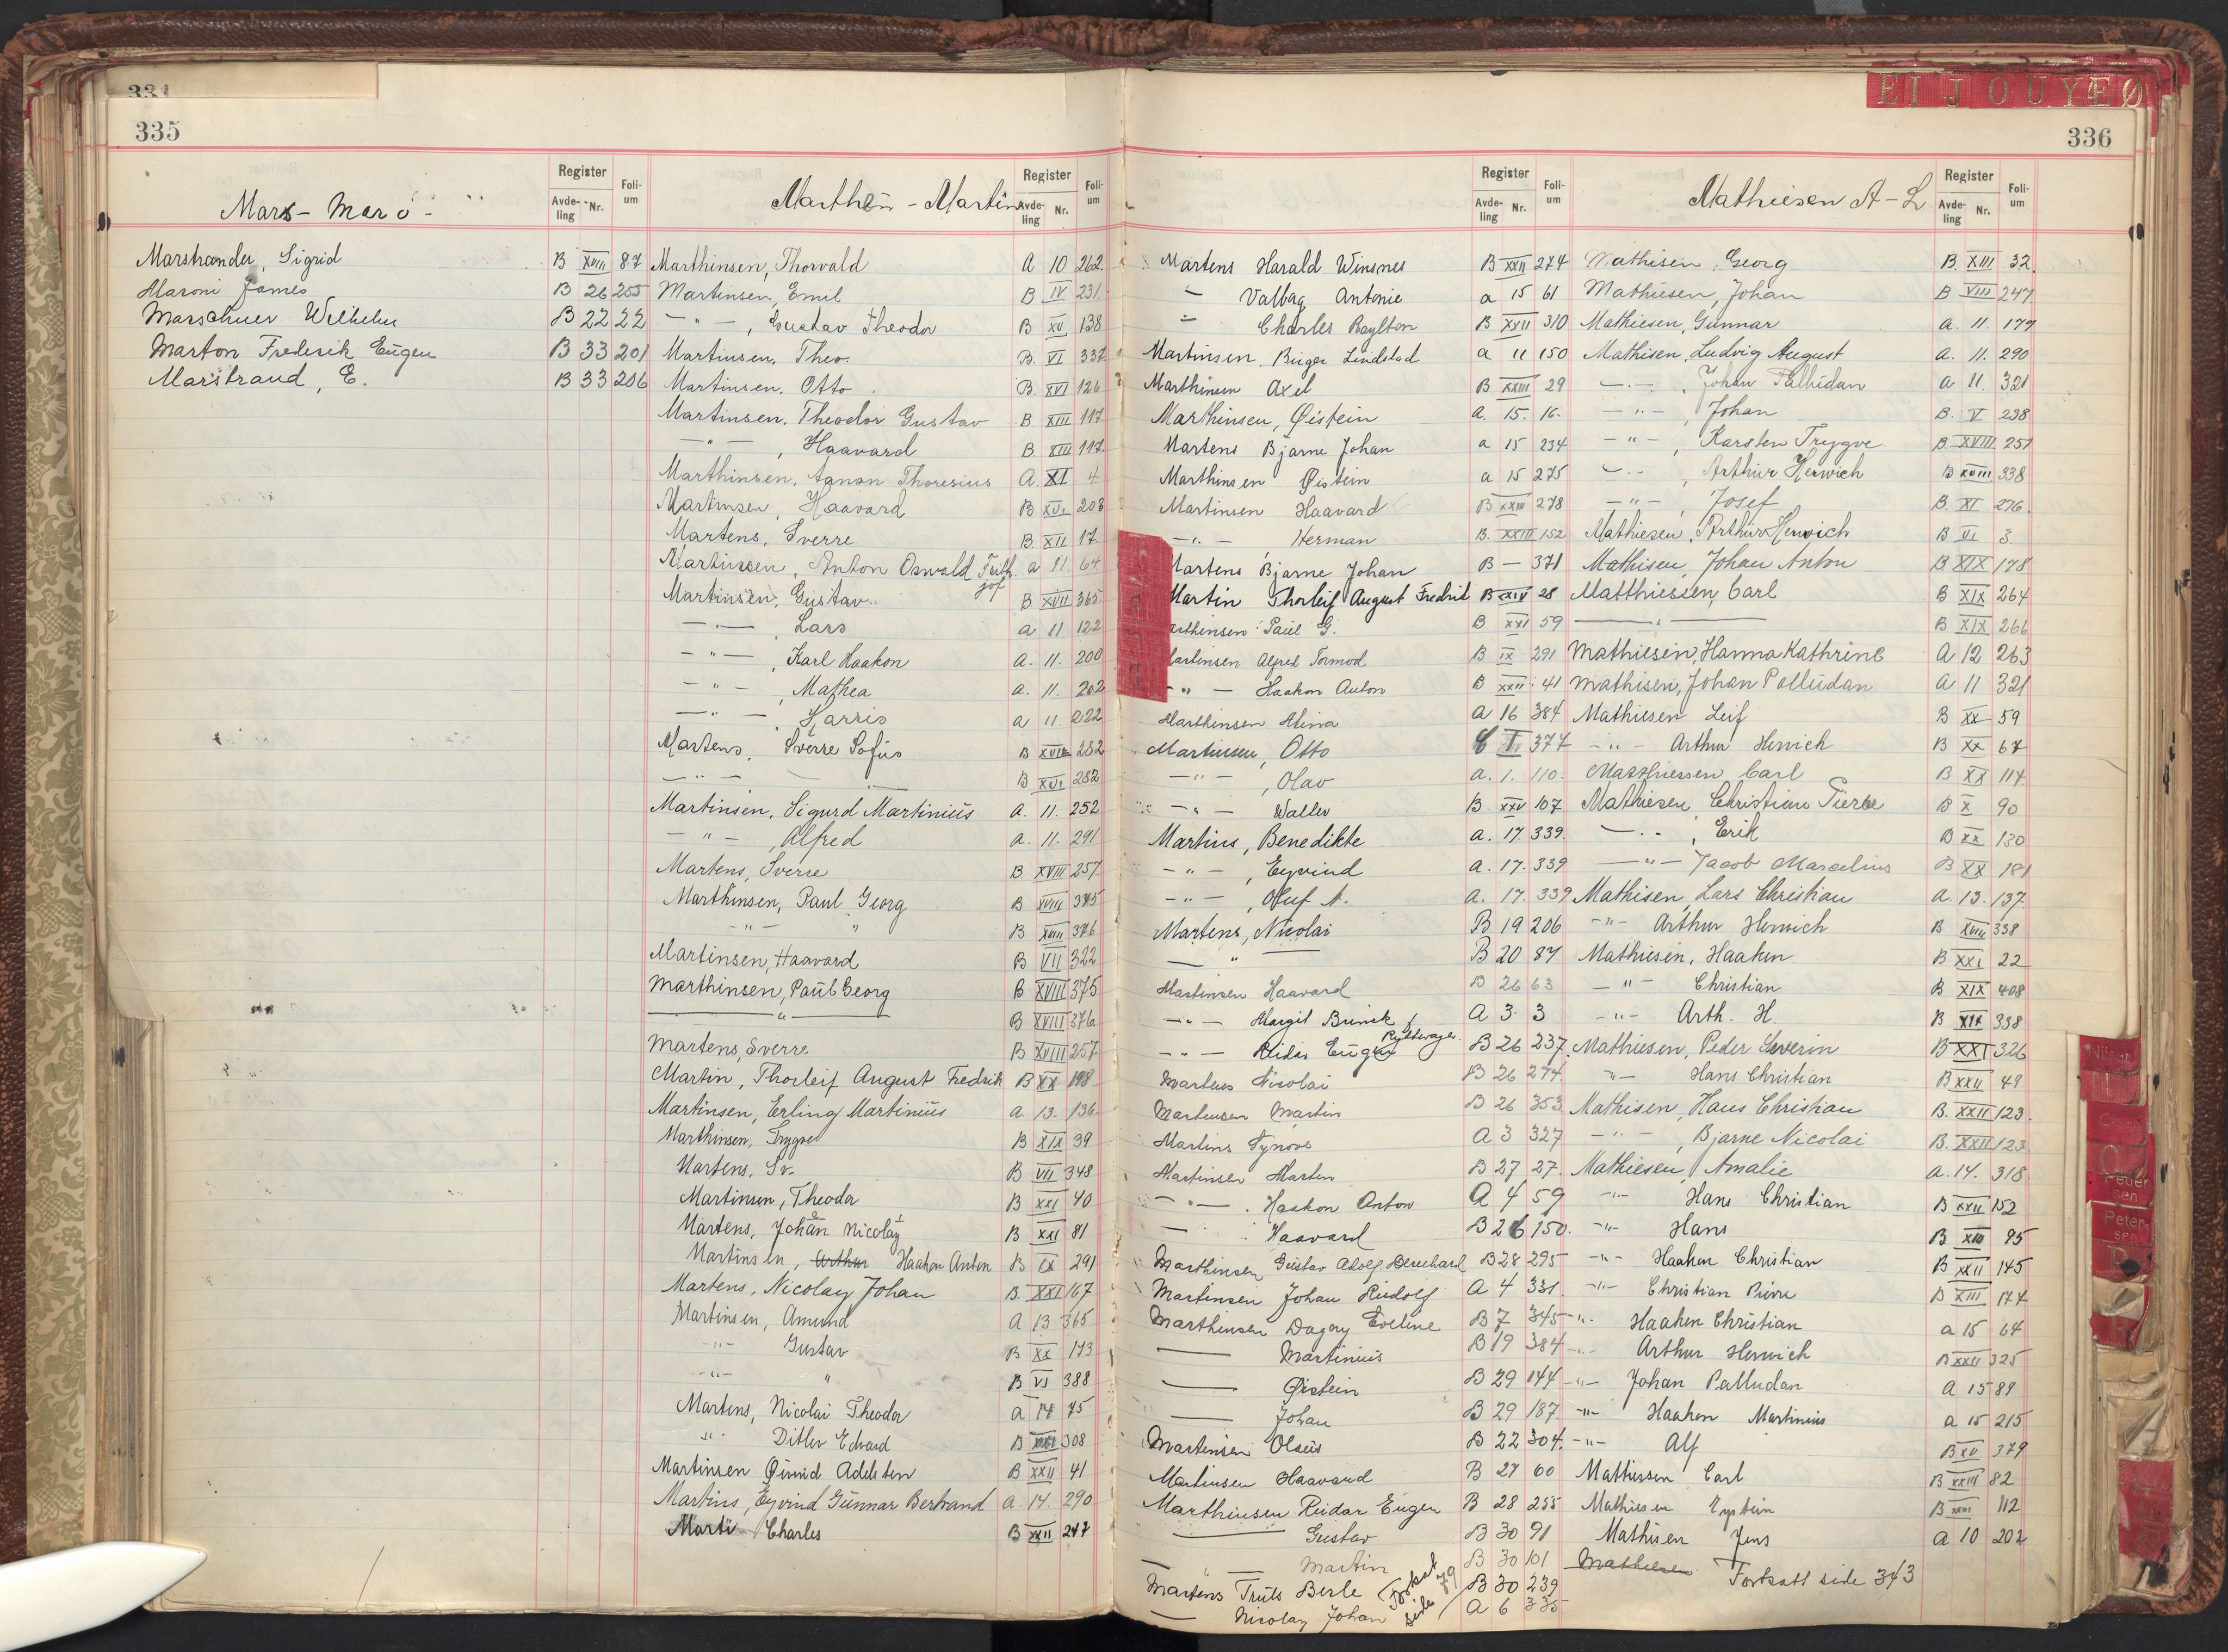 331
335
Register
Avde-ling Nr. Foli-um
Mars - Marö -
Marstrander, Sigrid B XVIII 87
Maroni James B 26 255
Marschner Wilhelm B 22 22
Marton Frederik Eugen B 33 201
Marstrand, E. B 33 206
Register
Avde-ling Nr. Foli-um
Marthen - Martin
Marthinsen, Thorvald A 10 262.
Martinsen, Emil B IV 231.
— " — , Gustav Theodor B XV 138
Martinsen, Theo. B. VI 337
Martinsen, Otto B. XVI 126
Martinsen, Theodor Gustav B XIII 117
— " — , Haavard B. XIII 117.
Marthinsen, Agnan Thoresius A. XI 4
Martinsen, Haavard B XVI 208
Martens, Sverre B. XII 17.
Martinsen, Anton Oswald Frith jof a 11. 64
Martinsen, Gustav B XVII 365
— " — , Lars a 11 122
— " — , Karl Haakon A. 11. 200
— " — , Mathea a. 11. 202
— " — , Harris a 11. 222
Martens, Sverre Sofus B XVII 282
— " — B XVI 282
Martinsen, Sigurd Martinius A. 11. 252
— " — , Alfred a. 11. 291
Martens, Sverre B XVIII 257.
Marthinsen, Paul Georg B XVIII 375
— " — " B XVIII 376
Martinsen, Haavard B VII 322
Marthinsen, Paul Georg B XVIII 375
— " — B XVIII 376
Martens, Sverre B XVIII 257
Martin, Thorleif August Fredrik B XX 198
Martinsen, Erling Martinius a 13. 136
Marthinsen, Trygve B XIX 39
Martens, Sv. B VII 348
Martinsen, Theodor B XXI 40
Martens, Johan Nicolay B XXI 81
Martinsen, Arthur Haakon Anton B IX 291
Martens, Nicolay Johan B. XXI 167
Martinsen, Amund A 13 365
— " — Gustav B XX 173
— " — " B VI 388
Martens, Nicolai Theodor a 14 75
" Ditlev Edvard B 308
Martinsen Øivind Adelsten B XXII 41
Martins, Eyvind Gunnar Bertrand a. 14. 290
Marti Charles B XXII 247
E I J O U Y Æ Ø
336
Register
Avde-ling Nr. Foli-um
Martens Harald Winsnes B XXII 274
— Valbg Antonie a 15 61
— Charles Baylton B XXII 310
Martinsen, Birger Lindstad a 11 150
Marthinsen Axel B XXIII 29
Marthinsen, Øistein A. 15. 16.
Martens Bjarne Johan a 15 234
Marthinsen Øistein a 15 275
Martinsen Haavard B XXIII 278
— " — , Herman B. XXIII 152
Martens Bjarne Johan B — 371
Martin Thorleif August Fredrik B XXIV 28
arthinsen Paul G. B XXI 59
Martinsen Alfred Tormod B IX 291
— " — Haakon Anton B XXII. 41
Marthinsen Alina A 16 384
Martinsen, Otto I 377
— " — , Olav a. 1. 110.
— " — Walter B XXV 107
Martins, Benedikte a. 17. 339.
— " — , Eyvind a. 17. 339
— " — , Oluf A. a. 17. 339
Martens, Nicolai B 19 206
— " — B 20 87
Martinsen Haavard B 26 63
— " — Margit Brinck A 3 3
— " — Reidar Eugen B 26 237.
Martens Nicolai B 26 274.
Martensen Martin B 26 353
Martins Synove A 3 327
Martinsen Marten B 27 27.
— " — . Haakon Anton A 4 59
— Haavard B 26 150.
Marthinsen Gustav Adolf Bernhard B 28 295
Martinsen Johan Rudolf A 4 331
Marthinsen Dagny Eveline B 7 345
— Martinius B 19 384
— Øistein B 29 144
— Johan B 29 187
Martinsen Olaus B 22 304.
Martinsen Haavard B 27 60
Marthinsen Reidar Eugen B 28 255
— Gustav B 30 91
— " — Martin B 30 101
Martens Truls Berle B 30 239
— Nicolay Johan A 6 335
Fortsat side 79
Register
Avde-ling Nr. Foli-um
Mathiesen A - L
Mathisen, Georg B. XIII 32.
Mathiesen, Johan B VIII 247.
Mathiesen, Gunnar a. 11. 177
Mathisen, Ludvig August a. 11. 290
— " — , Johan Palludan a 11. 321
— " — , Johan B. V 238
— " — , Karsten Trygve B. XVIII. 251
— " — , Arthur Herwich B XVIII 338
— " — , Josef B. XI 276.
Mathiesen, Arthur Herwich B VI 3
Mathisen, Johan Anton B XIX 178
Matthiessen, Carl B XIX 264
— " — B XIX 266
Mathiesen, Hanna Kathrine A 12 263
Mathisen, Johan Palludan A 11 321
Mathiesen Leif B XX 59
— " — Arthur Herwich B XX 67
Matthiessen Carl B XX 114.
Mathiesen, Christian Pierre B X 90
— " — , Erik B XX 130
— " — Jacob Marcelius B XX 181
Mathisen, Lars Christian a. 13. 137.
— " — Arthur Herwich B XVIII 338
Mathiesen, Haaken B XXI 22
— " — Christian B XIX 408
— " — Arth. H. B XIX 338
Mathiesen, Peder Severin B XXI 326
— " — Hans Christian B XXII 49
Mathisen, Hans Christian B. XXII 123.
— " — , Bjarne Nicolai B. XXII 123
Mathiesen, Amalie a. 14. 318
— " — Hans Christian B XXII 152
— " — Hans B XIII 95
— " — Haaken Christian B XXII 145
— " — Christian Pierre B XIII 174
— " — Haaken Christian a 15 64
— " — Arthur Herwich B XXII 325
— " — Johan Palludan a 15 89
— " — Haaken Martinius a 15 215
— " — Alf B XV 379
Mathiessen Carl B XXIII 82
Mathiesen Eystein B XXIII 112
Mathisen Jens a 10 202
Mathiesen Fortsatt side 343
Peder sen
Peter-sen